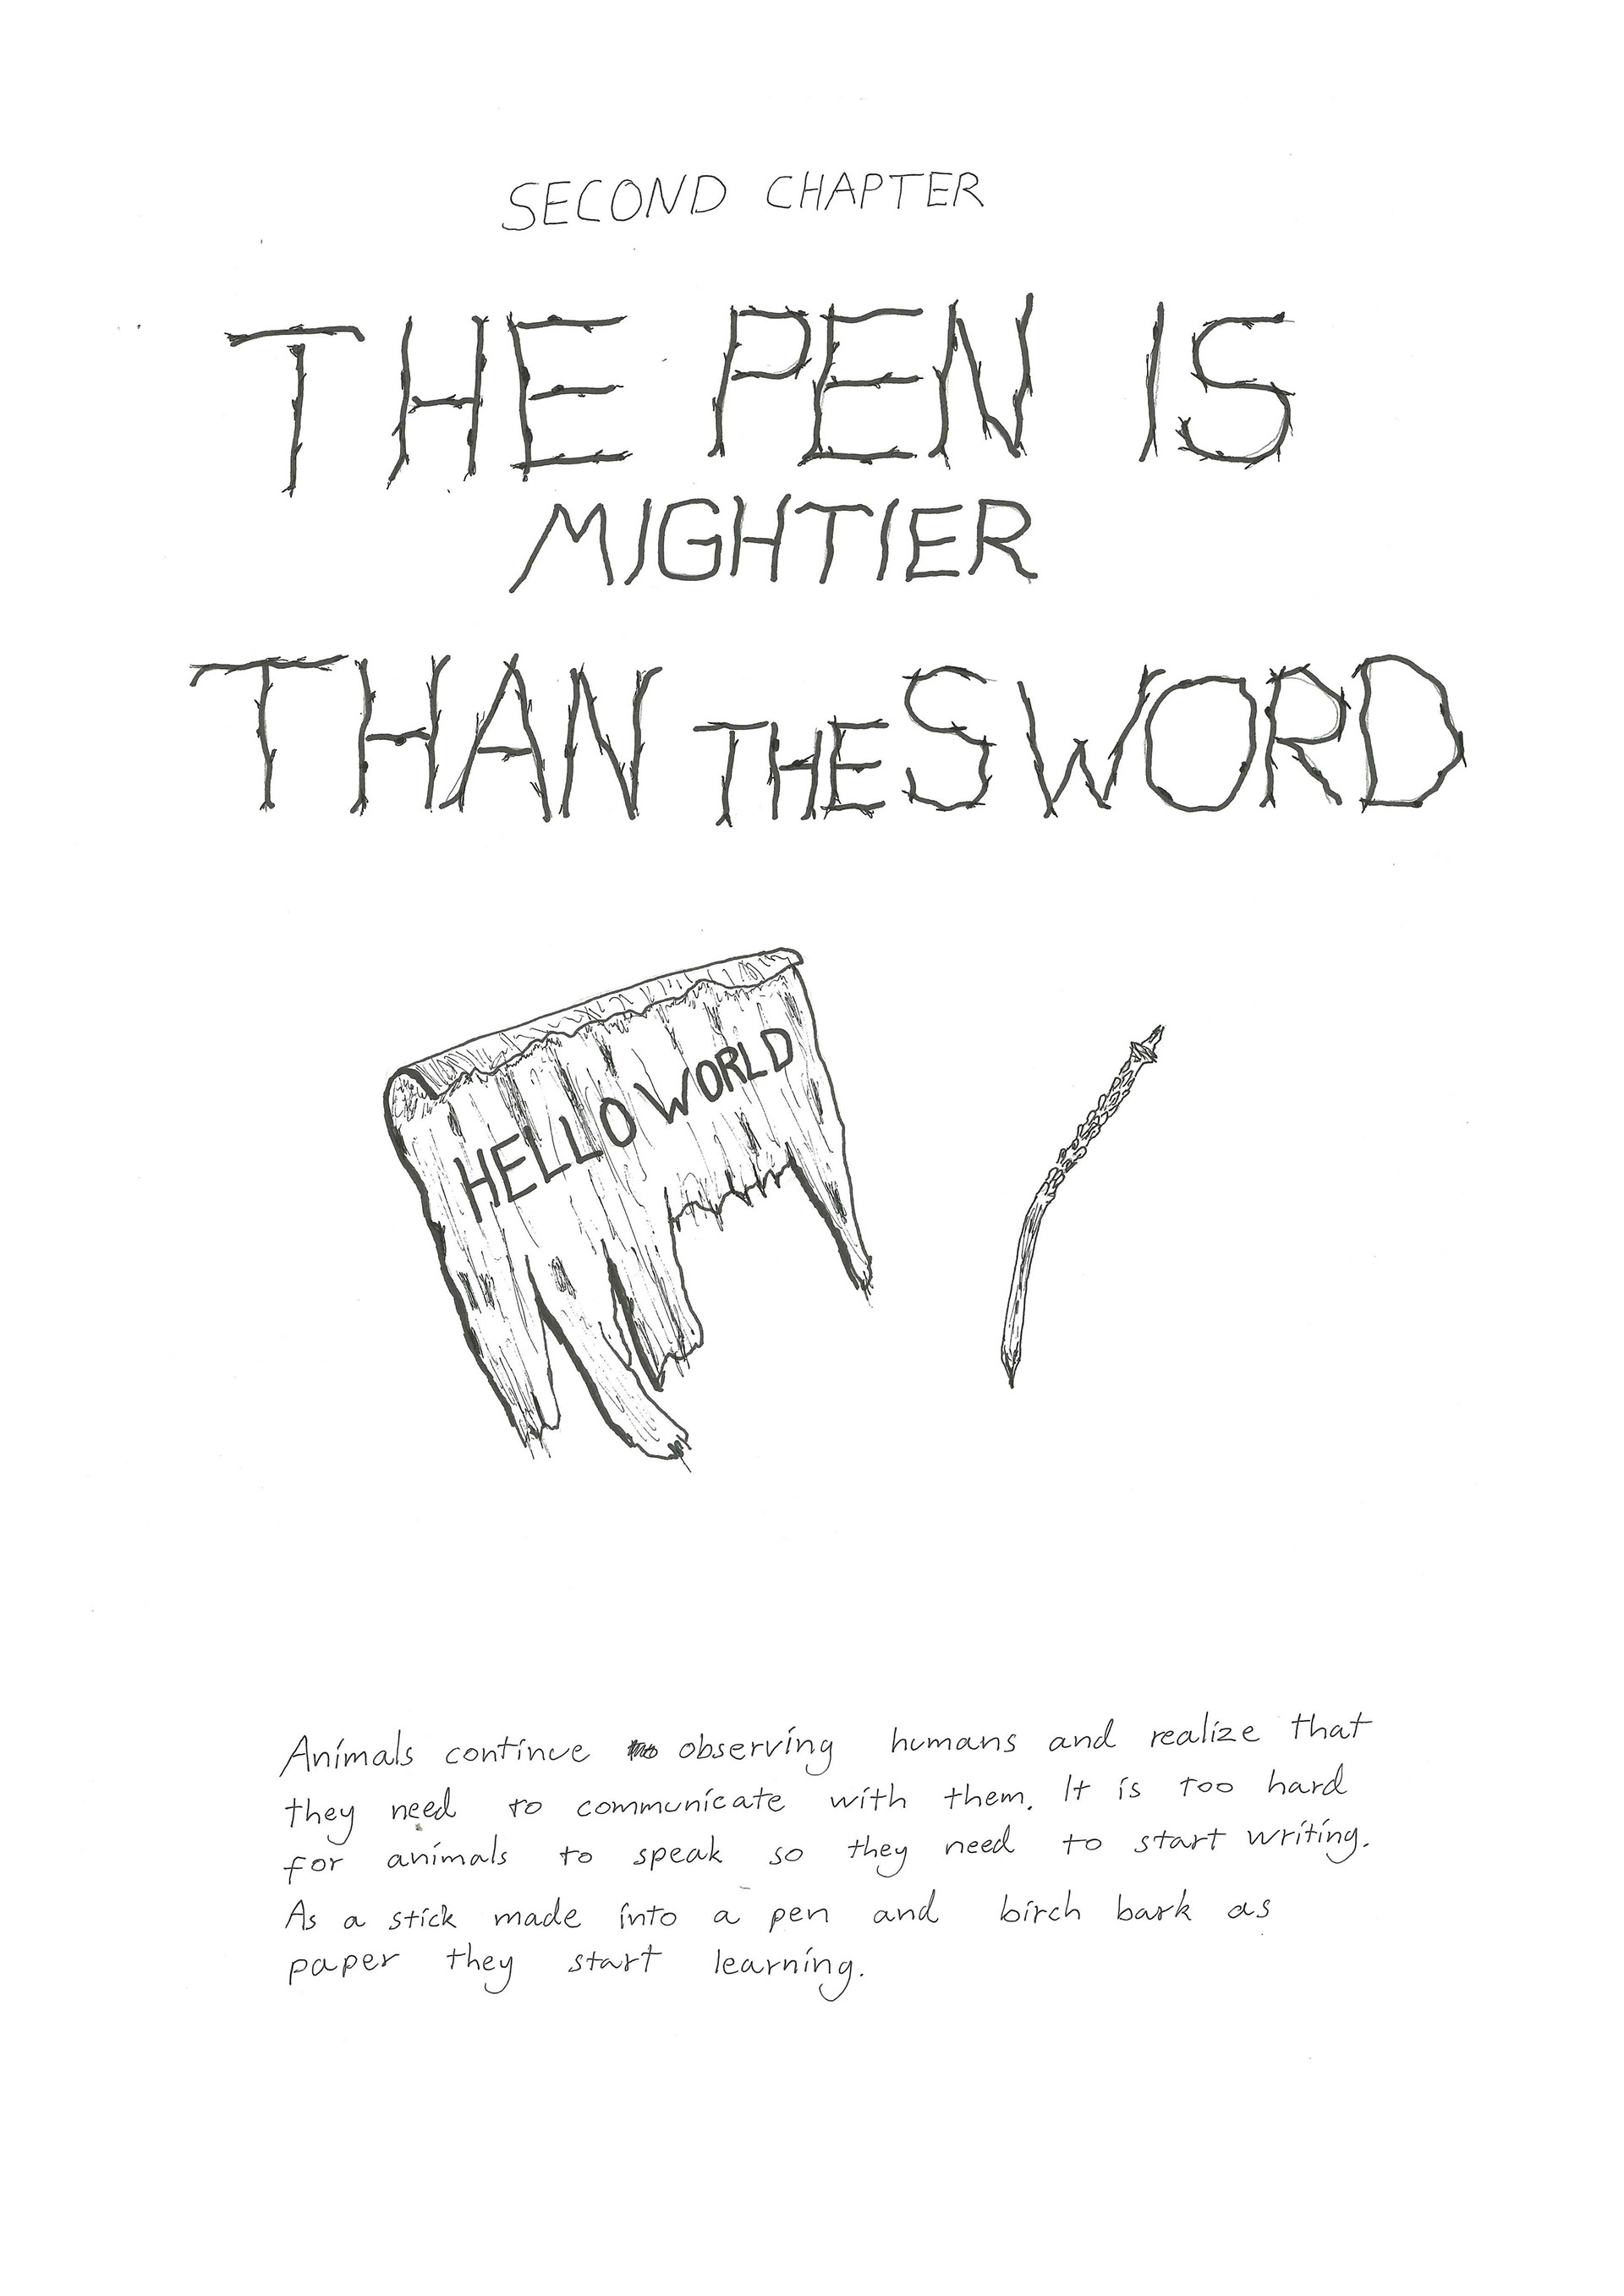 SECOND CHAPTER
THE PEN IS
MIGHTIER
THAN THE SWORD
HELLO WORLD
Animals continue observing humans and realize that
they need to communicate with them. It is too hard
for animals to speak so they need to start writing.
As a stick made into a pen and birch bark as
paper they start learning.